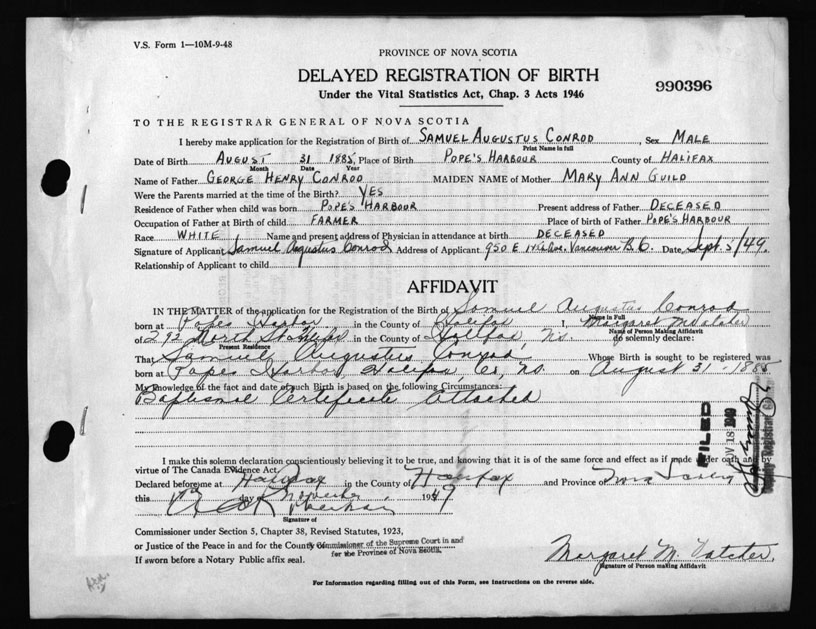 V.S. Form 1—10M-9-48
PROVINCE OF NOVA SCOTIA
DELAYED REGISTRATION OF BIRTH
990396
Under the Vital Statistics Act, Chap. 3 Acts 1946
TO THE REGISTRAR GENERAL OF NOVA SCOTIA
I hereby make application for the Registration of Birth of SAMUEL AUGUSTUS CONROD, Sex MALE
Print Name in full
Date of Birth AUGUST 31 1885, Place of Birth POPE'S HARBOUR County of HALIFAX
Month Date Year
Name of Father GEORGE HENRY CONROD MAIDEN NAME of Mother MARY ANN GUILD
Were the Parents married at the time of the Birth? YES
Residence of Father when child was born POPE'S HARBOUR Present address of Father DECEASED
Occupation of Father at Birth of child FARMER Place of birth of Father POPE'S HARBOUR
Race WHITE Name and present address of Physician in attendance at birth DECEASED
Signature of Applicant Samuel Augustus Conrod Address of Applicant 950 E 14th Ave. Vancouver B.C. Date Sept. 5/49.
Relationship of Applicant to child
AFFIDAVIT
IN THE MATTER of the application for the Registration of the Birth of Samuel Augustus Conrod
Name in Full
born at Popes Harbor in the County of Halifax I, Margaret M
Name of Person Making Affidavit
of 292 North St in the County of Halifax, N.S. do solemnly declare:
Present Residence
That Samuel Augustus Conrod Whose Birth is sought to be registered was
born at Popes Harbor, Halifax, Co, N.S. on August 31 - 1885
My knowledge of the fact and date of such Birth is based on the following Circumstances:
Baptismal Certificate attached
FILED
NOV 18 1949
Registrar
I make this solemn declaration conscientiously believing it to be true, and knowing that it is of the same force and effect as if made under oath and by
virtue of The Canada Evidence Act.
Declared before me at Halifax in the County of Halifax and Province of Nova Scotia
this day November 1949
Signature of
Commissioner under Section 5, Chapter 38, Revised Statutes, 1923,
or Justice of the Peace in and for the County
A Commissioner of the Supreme Court in and
for the Province of Nova Scotia.
If sworn before a Notary Public affix seal.
Margaret M.
Signature of Person making Affidavit
For Information regarding filling out of this Form, see instructions on the reverse side.